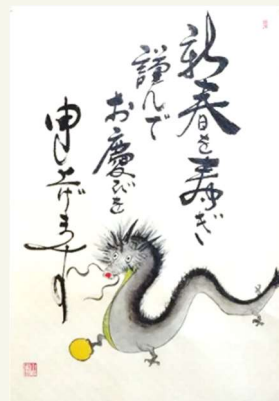 新春を寿ぎ
謹んで
お慶びを
申し上げます